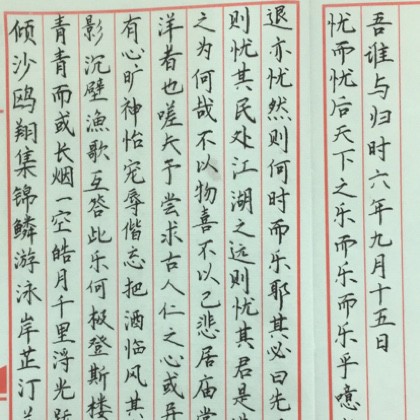 吾谁与归时六年九月十五日
忧而忧后天下之乐而乐而乐乎噫
退亦忧然则何时而乐耶其必曰先
则忧其民处江湖之远则忧其君是
之为何哉不以物喜不以己悲居庙堂
洋者也嗟夫予尝求古人仁之心或异
有心旷神怡宠辱偕忘把酒临风其
影沉壁漁歌互答此乐何极登斯楼
青青而或长烟一空皓月千里浮光跃
倾沙鸥翔集锦鳞游泳岸芷汀